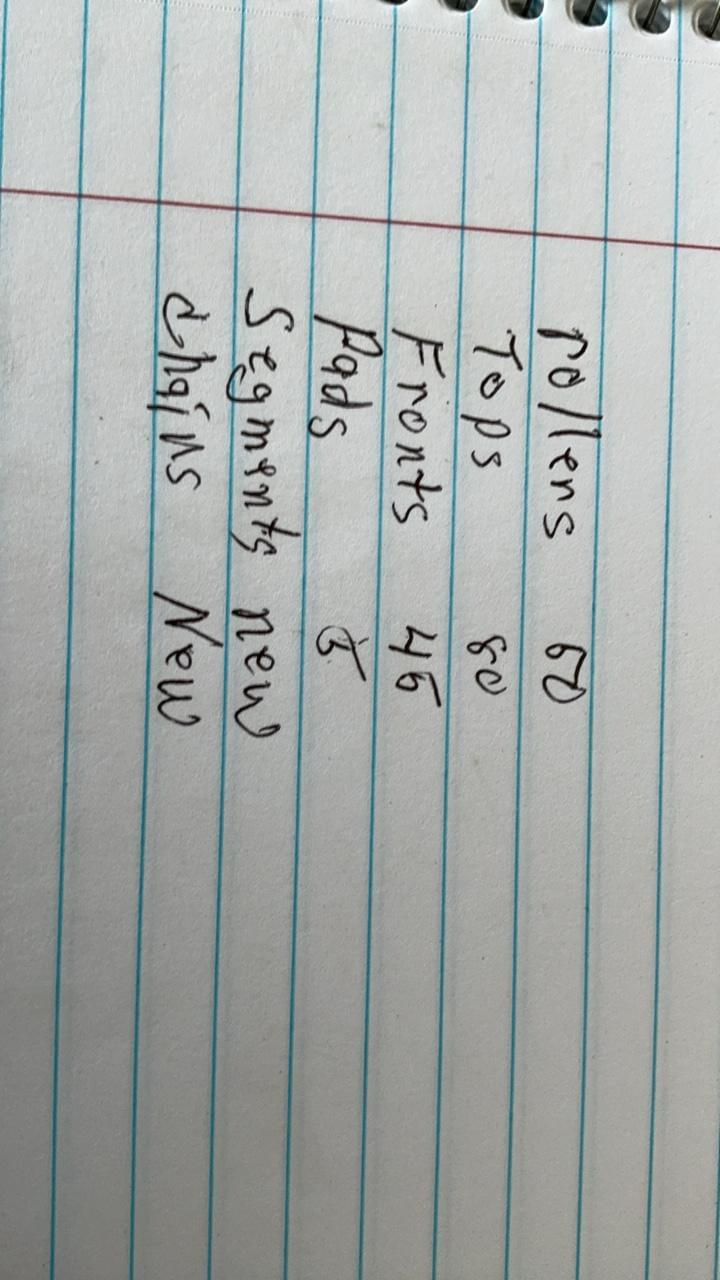 rollers 60
Tops 80
Fronts 45
Pads 5
Segments new
chains New